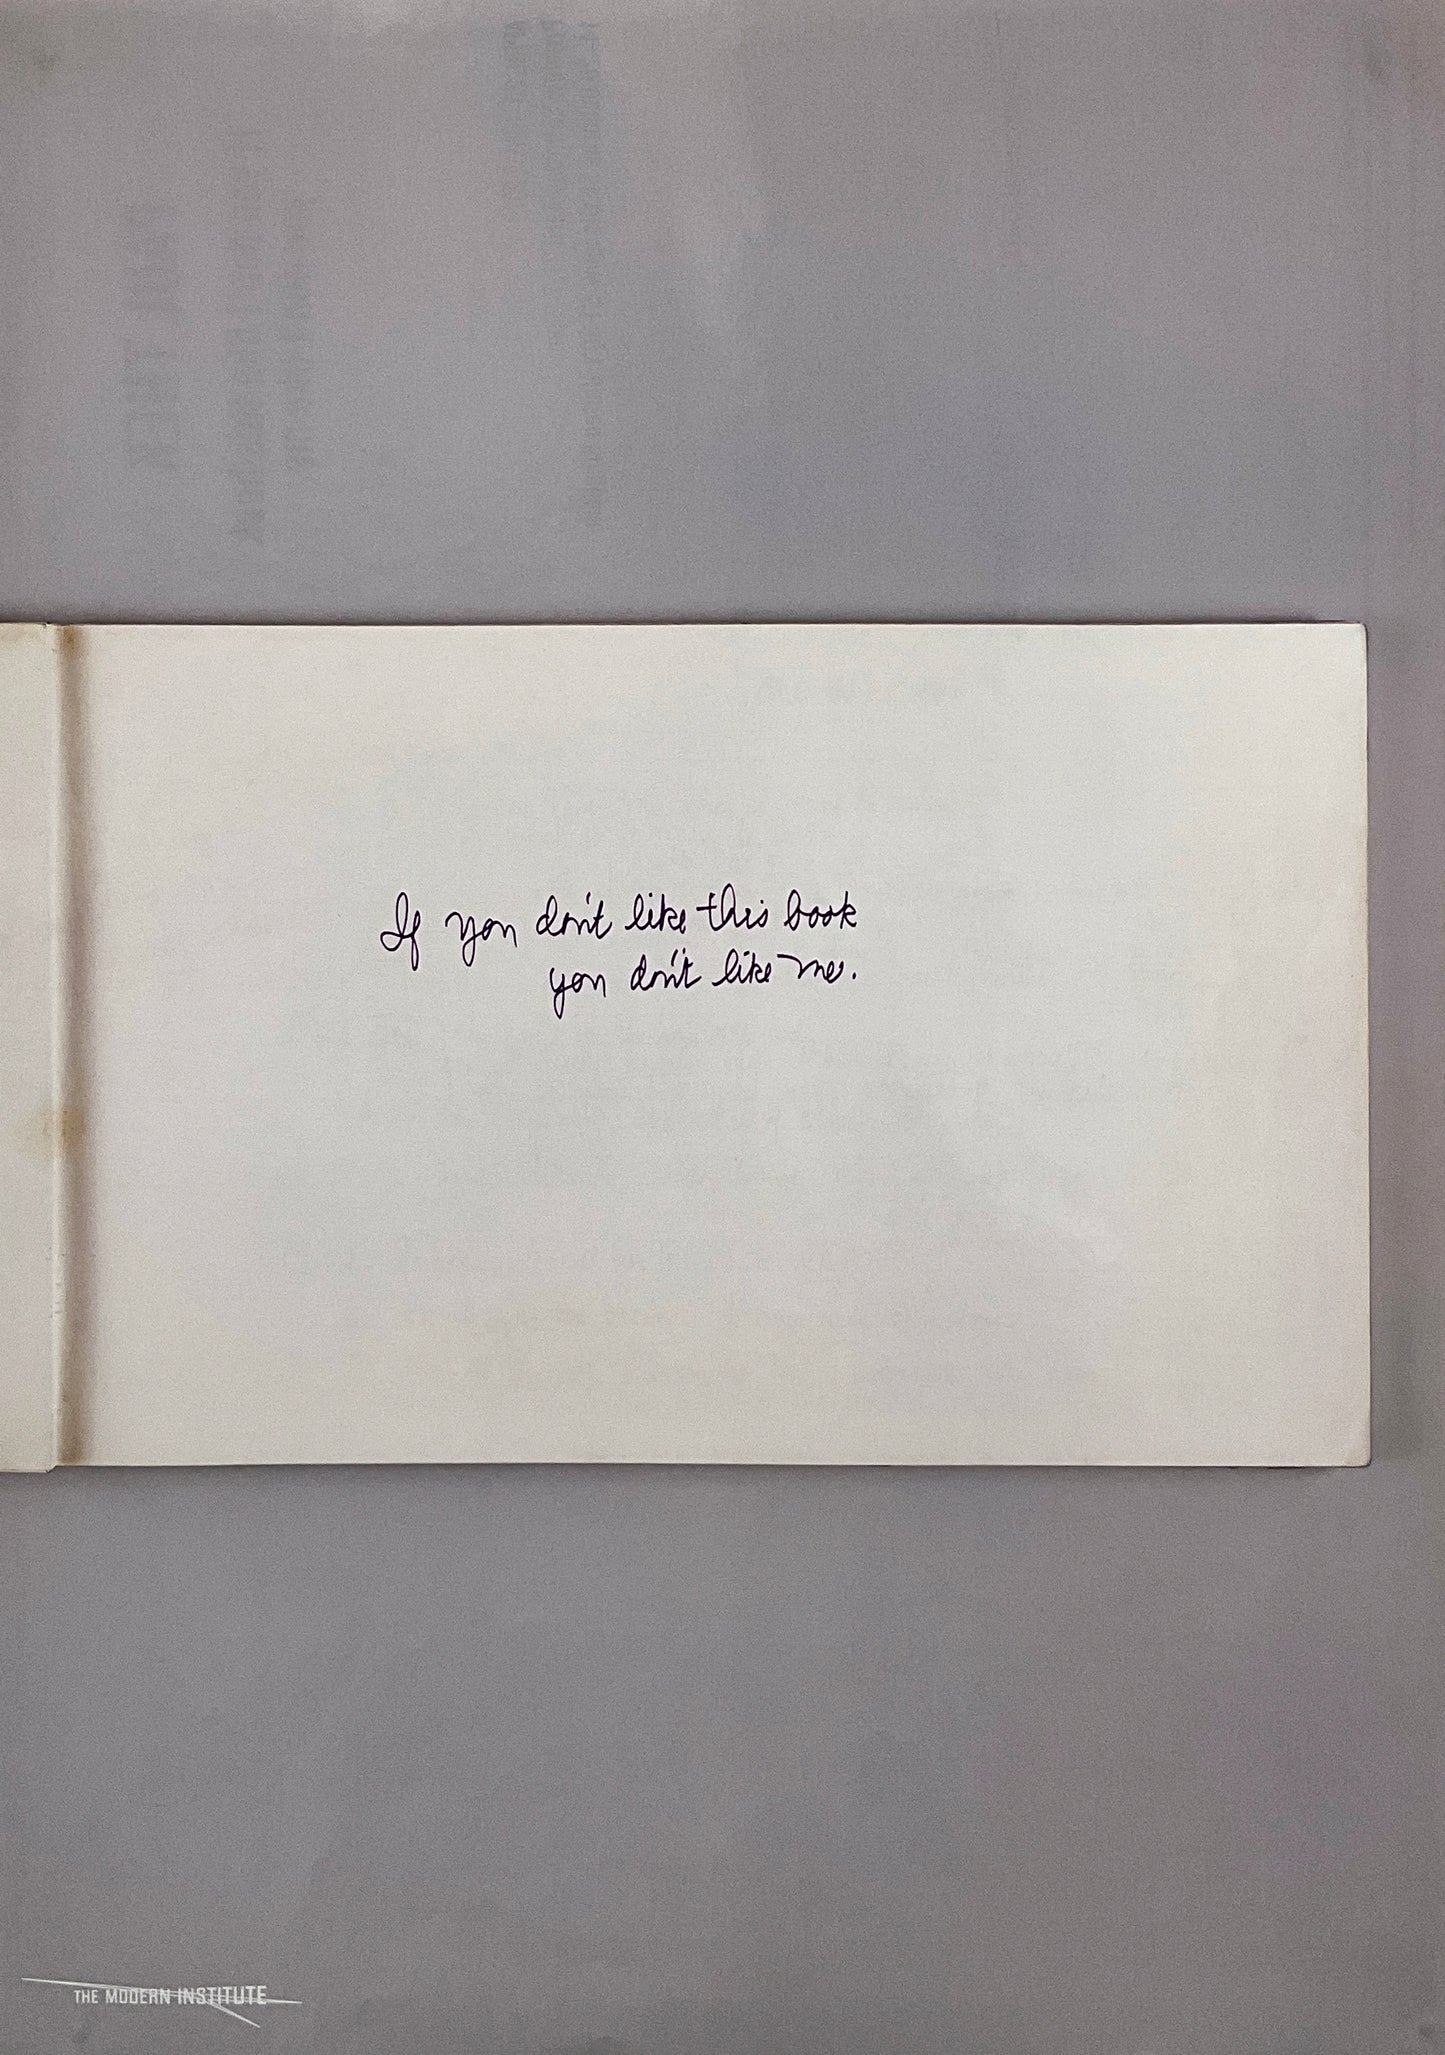 If you don't like this book
you don't like me.
THE MODERN INSTITUTE